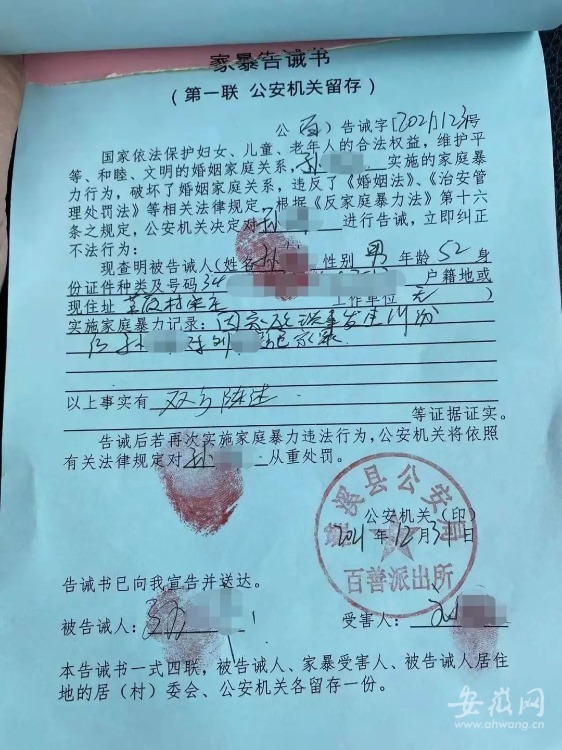 家暴告诫书
（第一联 公安机关留存）
公（百）告诫字[2021]123号
国家依法保护妇女、儿童、老年人的合法权益，维护平
等、和睦、文明的婚姻家庭关系，孙 实施的家庭暴
力行为，破坏了婚姻家庭关系，违反了《婚姻法》、《治安管
理处罚法》等相关法律规定，根据《反家庭暴力法》第十六
条之规定，公安机关决定对孙 进行告诫，立即纠正
不法行为：
现查明被告诫人(姓名孙 性别 男 年龄 52 身
份证件种类及号码34 户籍地或
现住址 工作单位 无 )
实施家庭暴力记录：因家庭琐事发生纠纷
孙
以上事实有 双方陈述
等证据证实。
告诫后若再次实施家庭暴力违法行为,公安机关将依照
有关法律规定对孙 从重处罚。
濉溪县公安局
百善派出所
公安机关（印）
2021年12月31日
告诫书已向我宣告并送达。
被告诫人：孙
受害人：刘
本告诫书一式四联，被告诫人、家暴受害人、被告诫人居住
地的居（村）委会、公安机关各留存一份。
安徽网
www.ahwang.cn